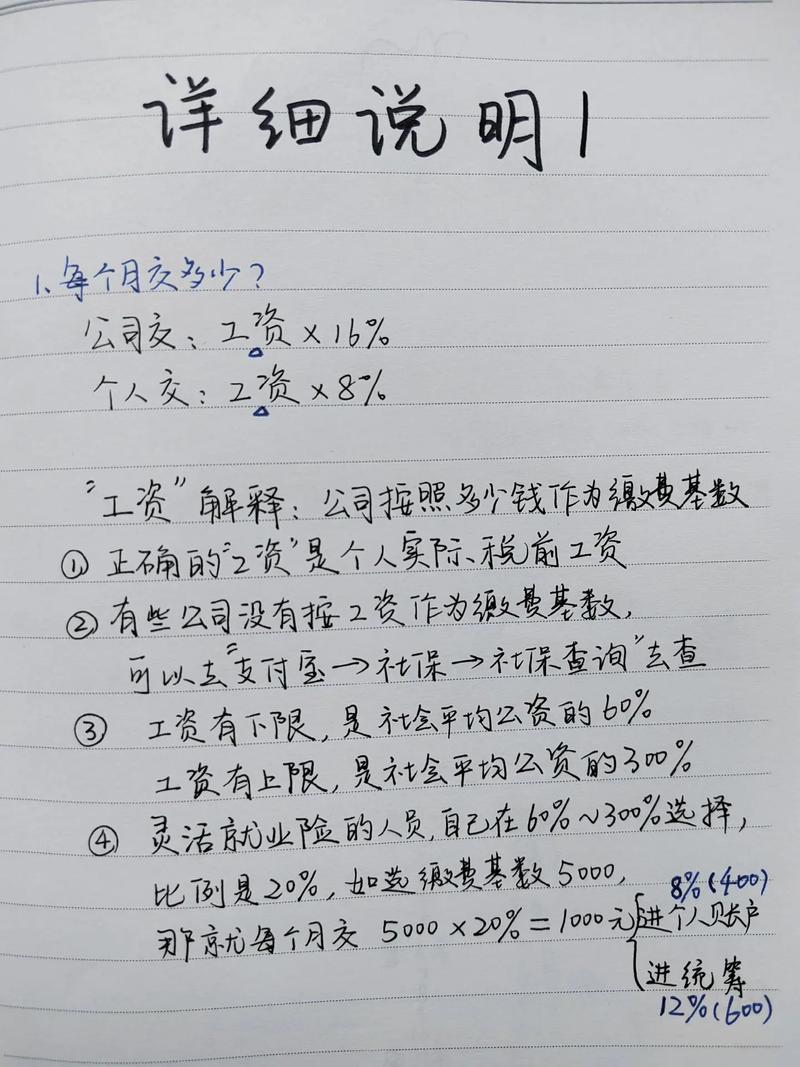 详细说明1
1、每个月交多少?
公司交：工资×16%
个人交：工资×8%
"工资"解释：公司按照多少钱作为缴费基数
① 正确的"工资"是个人实际、税前工资
② 有些公司没有按工资作为缴费基数,
可以去"支付宝→社保→社保查询"去查
③ 工资有下限,是社会平均公资的60%
工资有上限,是社会平均公资的300%
④ 灵活就业险的人员,自己在60%~300%选择,
比例是20%,如选缴费基数5000,
8%(400)
那就每个月交 5000×20%=1000元{进个人账户
进统筹
12%(600)